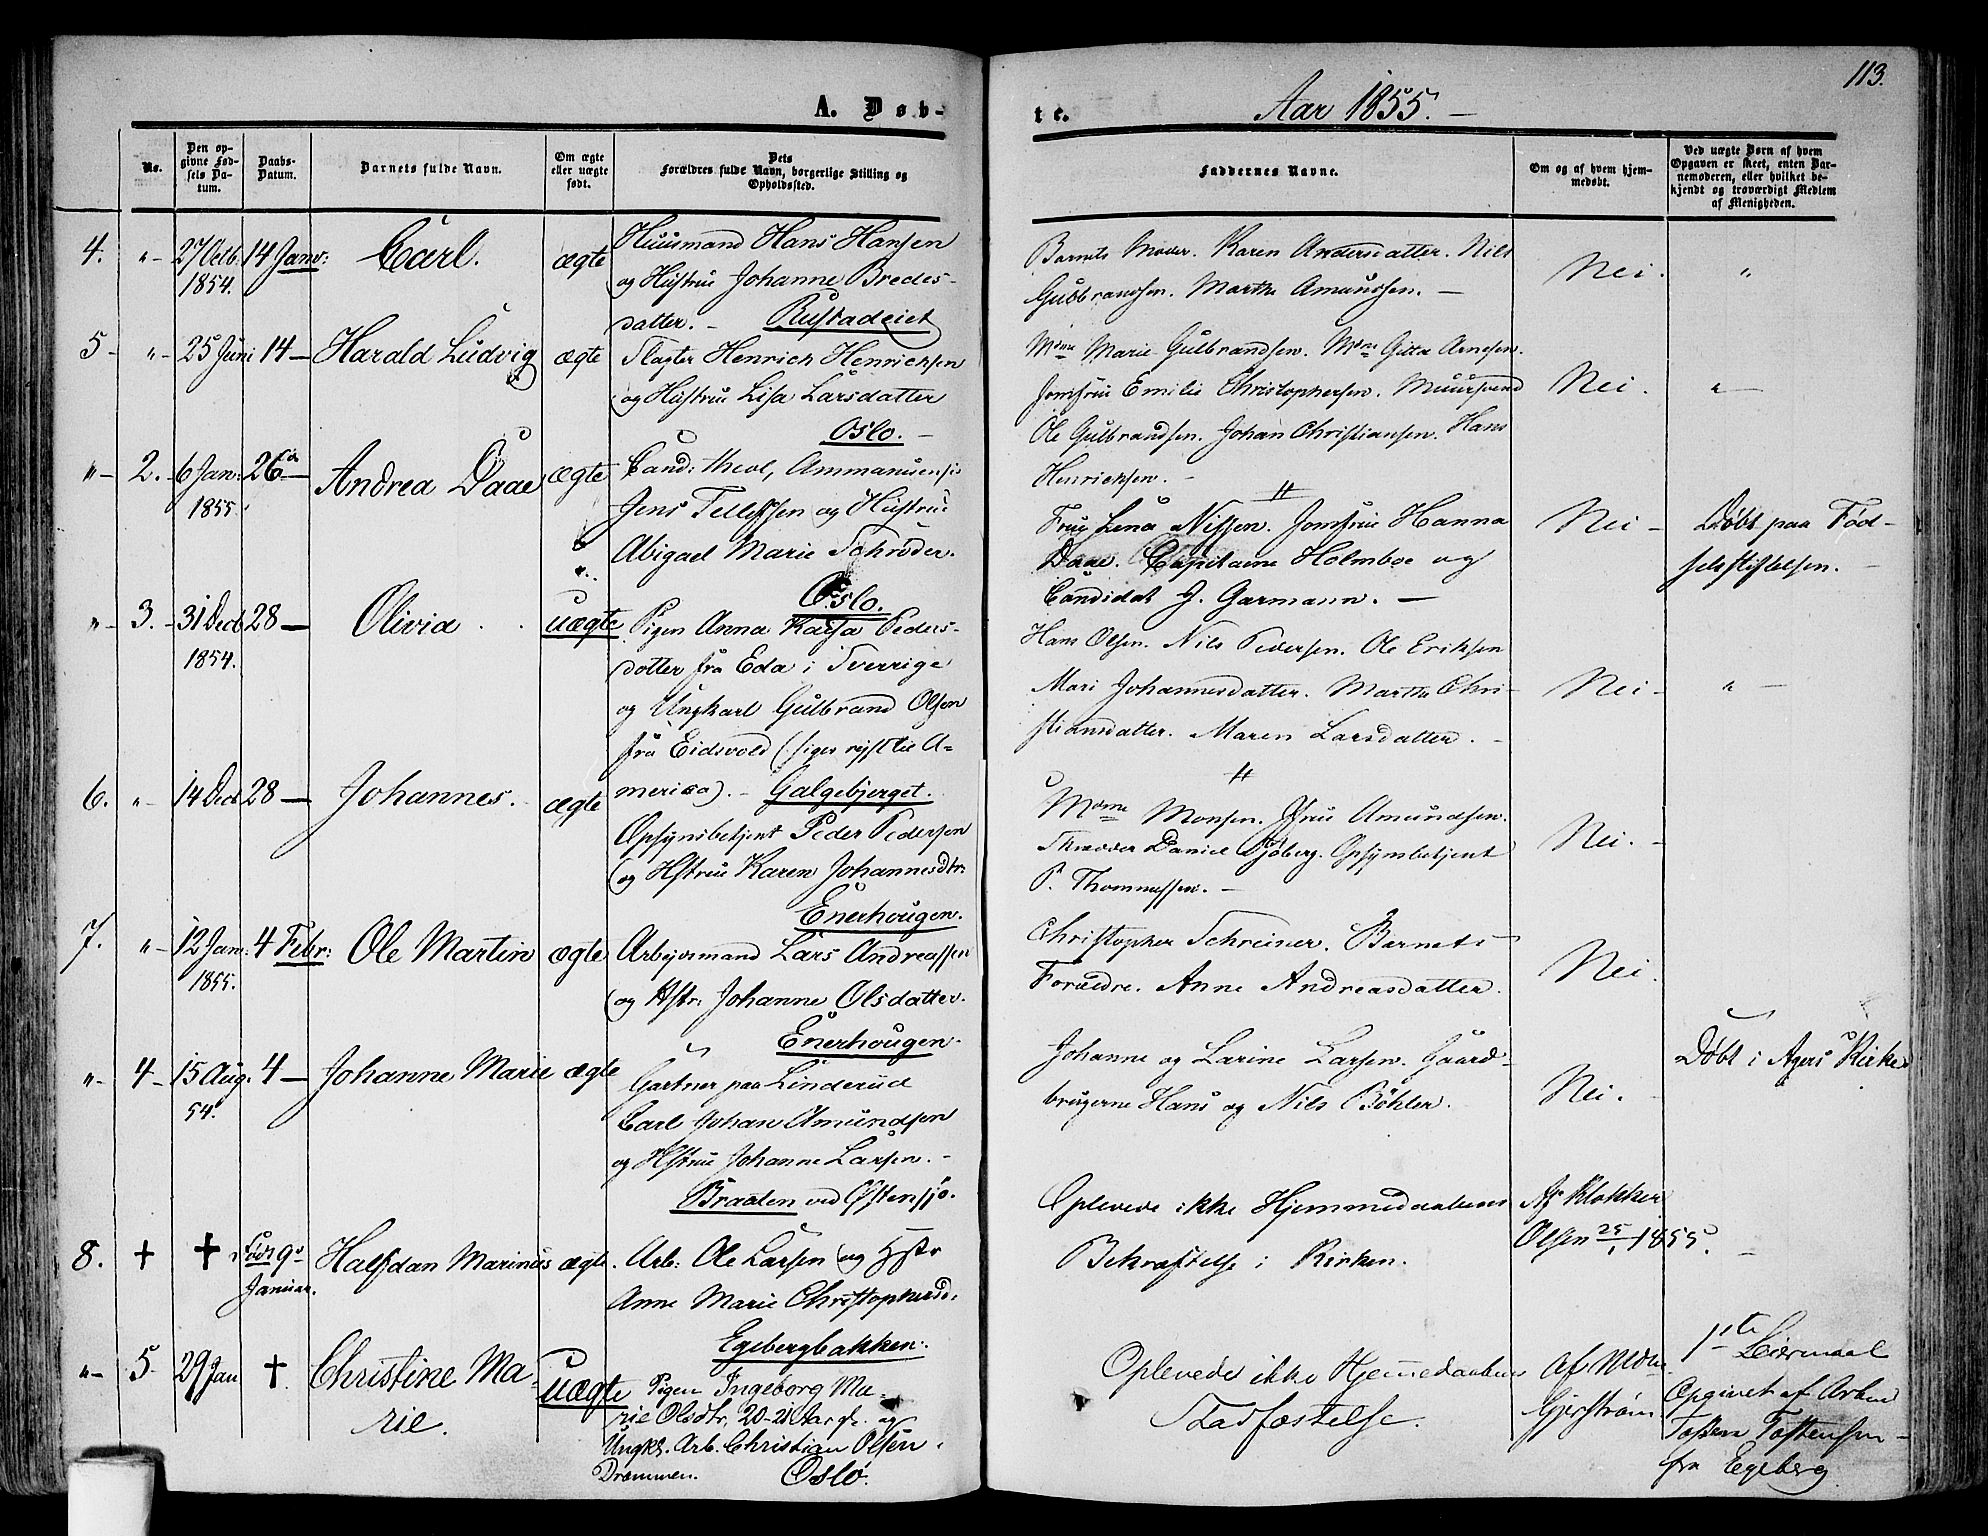 113.
A. Døb-
te.
Aar 1855. -
No.
Den op-
givne Fød-
sels Da-
tum.
Daabs-
Datum.
Barnets fulde Navn.
Om ægte
eller uægte
født.
Dets
Forældres fulde Navn, borgerlige Stilling og
Opholdssted.
Faddernes Navne.
Om og af hvem hjem-
medøbt.
Ved uægte Børn af hvem
Opgaven er skeet, enten Bar-
nemoderen, eller hvilket be-
kjendt og troværdigt Medlem
af Menigheden.
4. " 27 Octb: 14 Janv: Carl. ægte
1854.
Huusmand Hans Hansen
og Hustrue Johanne Bredes-
datter. - Rustadeiet
Barnets Moder. Karen Andersdatter. Nils
Gulbrandsen. Marthe Amundsen. -
Nei. "
5 - " 25 Juni 14 - Harald Ludvig ægte
Slagter Henrich Henrichsen
og Hustrue Lisa Larsdatter
Oslo. -
Mdme Marie Gulbrandsen. Mdme Gitta Arnesen.
Jomfrue Emilie Christophersen. Muursvend
Ole Gulbrandsen. Johan Christiansen. Hans
Henricksen. -
Nei. "
" 2. 6 Jan: 26 - Andrea Daae ægte
1855.
Cand: theol, Ammanuensis
Jens Tellefsen og Hustrue
Abigael Marie Schrøder.
Oslo.
Frue Lena Nissen. Jomfrue Hanna
Daae. Capitaine Holmboe og
Candidat J. Garmann. -
Nei - Døbt paa Fød-
selsstiftelsen. -
" 3. 31 Decb 28 - Olivia. uægte
1854.
Pigen Anna Kaisa Peders-
dotter fra Eda i Sverrige
og Ungkarl Gulbrand Olsen
fra Eidsvold (siges reist til A-
merica). - Galgebjerget.
Hans Olsen. Nils Pedersen. Ole Eriksen
Mari Johannesdatter. Marthe Chri-
stiansdatter. Maren Larsdatter. -
Nei - "
6. " 14 Decb 28 - Johannes. ægte
Opsynsbetjent Peder Pedersen
og Hstrue Karen Johannesdtr:
Enerhougen.
Mdme Monsen. Frue Amundsen.
Daniel Sjøberg. Opsynsbetjent
P. Thomassen. -
Nei. -
7. " 12 Jan: 4 Febr: Ole Martin ægte
1855.
Arbejdsmand Lars Andreassen
og Hstr: Johanne Olsdatter.
Enerhougen.
Christopher Schreiner. Barnets
Forældre. Anne Andreasdatter.
Nei.
" 4 - 15 Aug. 4 - Johanne Marie ægte
54.
Gartner paa Linderud
Carl Johan Amundsen
og Hstrue Johanne Larsen. -
Braaten ved Østensjø.
Johanne og Larine Larsen. Gaard-
brugerne Hans og Nils Bøhler.
Nei. Døbt i Agers Kirke
8. + + Født 9de Halfdan Marinus ægte.
Januar.
Arb: Ole Larsen og Hstr
Anne Marie Christophersd:
Egebergbakken.
Oplevede ikke Hjemmedaabens
Bekræftelse i Kirken.
Af Klokker
Olsen 25/1 1855. -
" 5 29 Jan + Christine Ma-
rie. uægte
Pigen Ingeborg Ma-
rie Olsdtr, 20-21 Aar gl. og
Ungkl. Arb. Christian Olsen.
Drammen. Oslo.
Oplevede ikke Hjemmedaabens
Stadfæstelse.
Af Mdm.
Gjerstrøm
1ste Leiermaal
Opgivet af Arbm
Tosten Tostensen
fra Egeberg